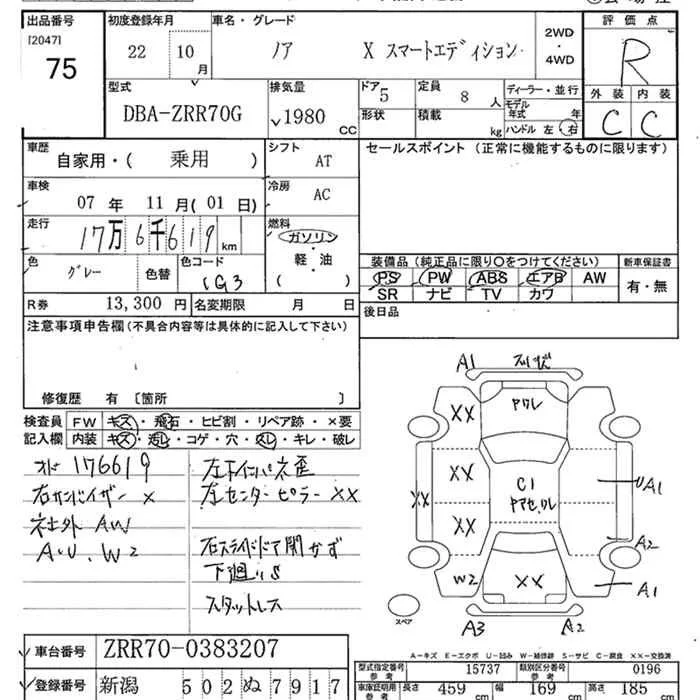 出品番号 初度登録年月 車名・グレード 評価点
[2047] 75 22 10月 ノア X スマートエディション 2WD・4WD R
型式 排気量 ドア 5 定員 8人 ディーラー・並行 外装 内装
DBA-ZRR70G 1980 CC 形状 積載 kg モデル年式 年 C C
ハンドル 左 右
車歴 シフト セールスポイント (正常に機能するものに限ります)
自家用・( 乗用 ) AT
車検 冷房
07年 11月(01日) AC
走行 燃料
17万6千619km ガソリン・軽・油
( )
色 グレー 色替 色コード 1G3
装備品(純正品に限り○をつけてください) 新車保証書
PS PW ABS エアB AW 有・無
SR ナビ TV カワ
R券 13,300円 名変期限 月 日 後日品
注意事項申告欄(不具合内容等は具体的に記入して下さい)
修復歴 有 〔箇所 〕
検査員記入欄 FW キズ・飛石・ヒビ割・リペア跡・×要
内装 キズ・汚レ・コゲ・穴・スレ・キレ・破レ
オド 176619
右サンバイザー ×
社外 AW
A・U、W2
左下インパネ歪
左センターピラー XX
右スライドドア開かず
下廻りS
スタットレス
A1
XX
XX
XX
XX
C1
W2
XX
UA1
A2
A1
A3
A2
スペア
A-キズ E-エクボ U-凹み W-補修跡 S-サビ C-腐食 XX-交換済
車台番号 ZRR70-0383207
型式指定番号 参考 15737 類別区分番号 参考 0196
登録番号 新潟 502ぬ7917
車庫証明用 参考 長さ 459cm 幅 169cm 高さ 185cm